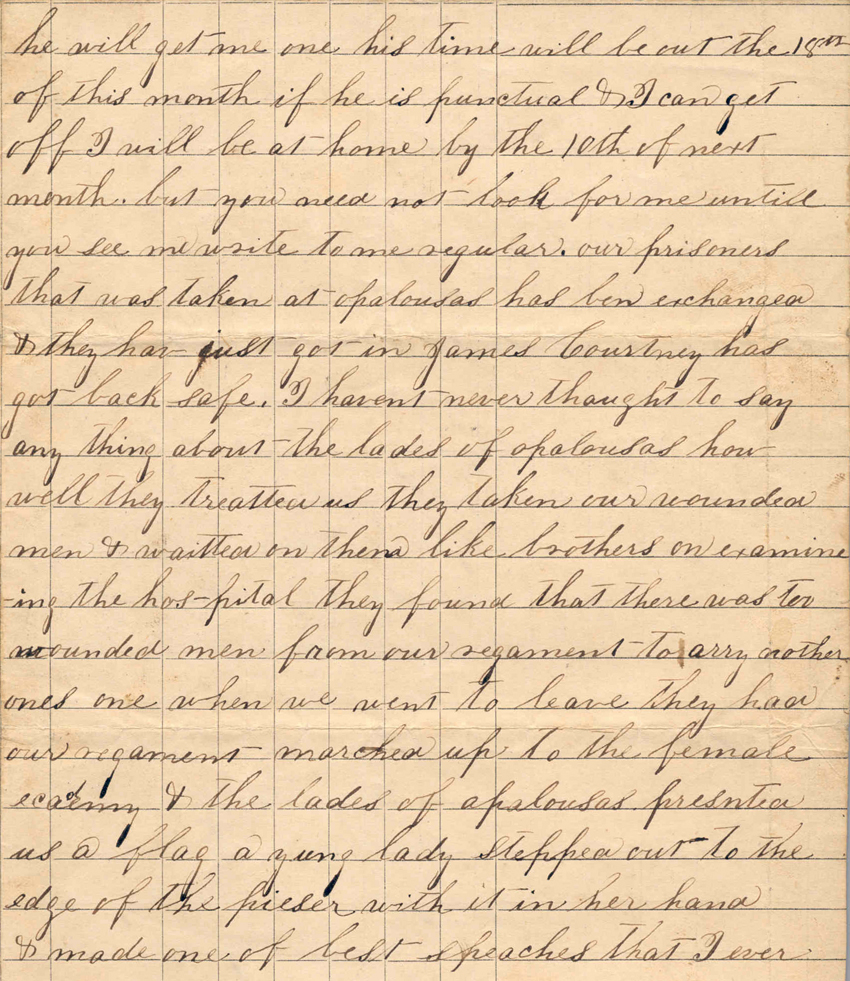 he will get me one his time will be out the 18th
of this month if he is punctual & I can get
off I will be at home by the 10th of next
month. but you need not look for me untill
you see me write to me regular. our prisoners
that was taken at opalousas has ben exchanged
& they hav just got in James Courtney has
got back safe. I havent never thaught to say
any thing about the lades of opalousas how
well they treatted us they taken our wounded
men & waitted on them like brothers on examine
-ing the hos-pital they found that there was too
wounded men from our regament to arry nother
ones one when we went to leave they had
our regament marched up to the female
ecademy & the lades of apalousas presnted
us a flag a yung lady stepped out to the
edge of the pieser with it in her hand
& made one of best speaches that I ever